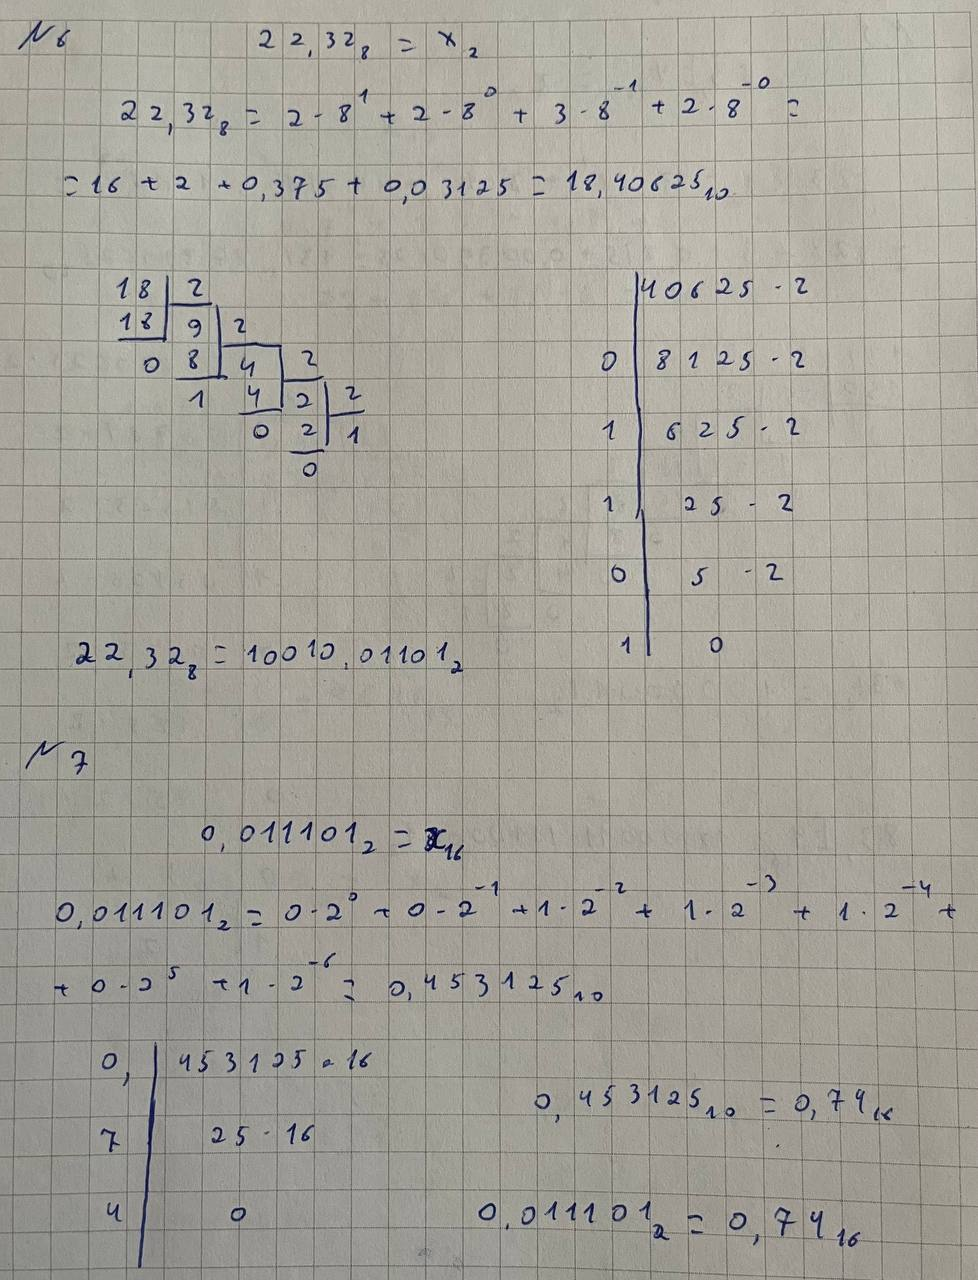 № 6 22,32₈ = x₂
22,32₈ = 2 · 8¹ + 2 · 8⁰ + 3 · 8⁻¹ + 2 · 8⁻⁰ =
= 16 + 2 + 0,375 + 0,03125 = 18,40625₁₀
18 2
18 9 2
0 8 4 2
1 4 2 2
0 2 1
0
40625 · 2
0 8125 · 2
1 625 · 2
1 25 · 2
0 5 · 2
1 0
22,32₈ = 10010,01101₂
№ 7
0,011101₂ = x₁₆
0,011101₂ = 0 · 2⁰ + 0 · 2⁻¹ + 1 · 2⁻² + 1 · 2⁻³ + 1 · 2⁻⁴ +
+ 0 · 2⁵ + 1 · 2⁻⁶ = 0,453125₁₀
0, 453125 · 16
7 25 · 16
4 0
0,453125₁₀ = 0,74₁₆
0,011101₂ = 0,74₁₆